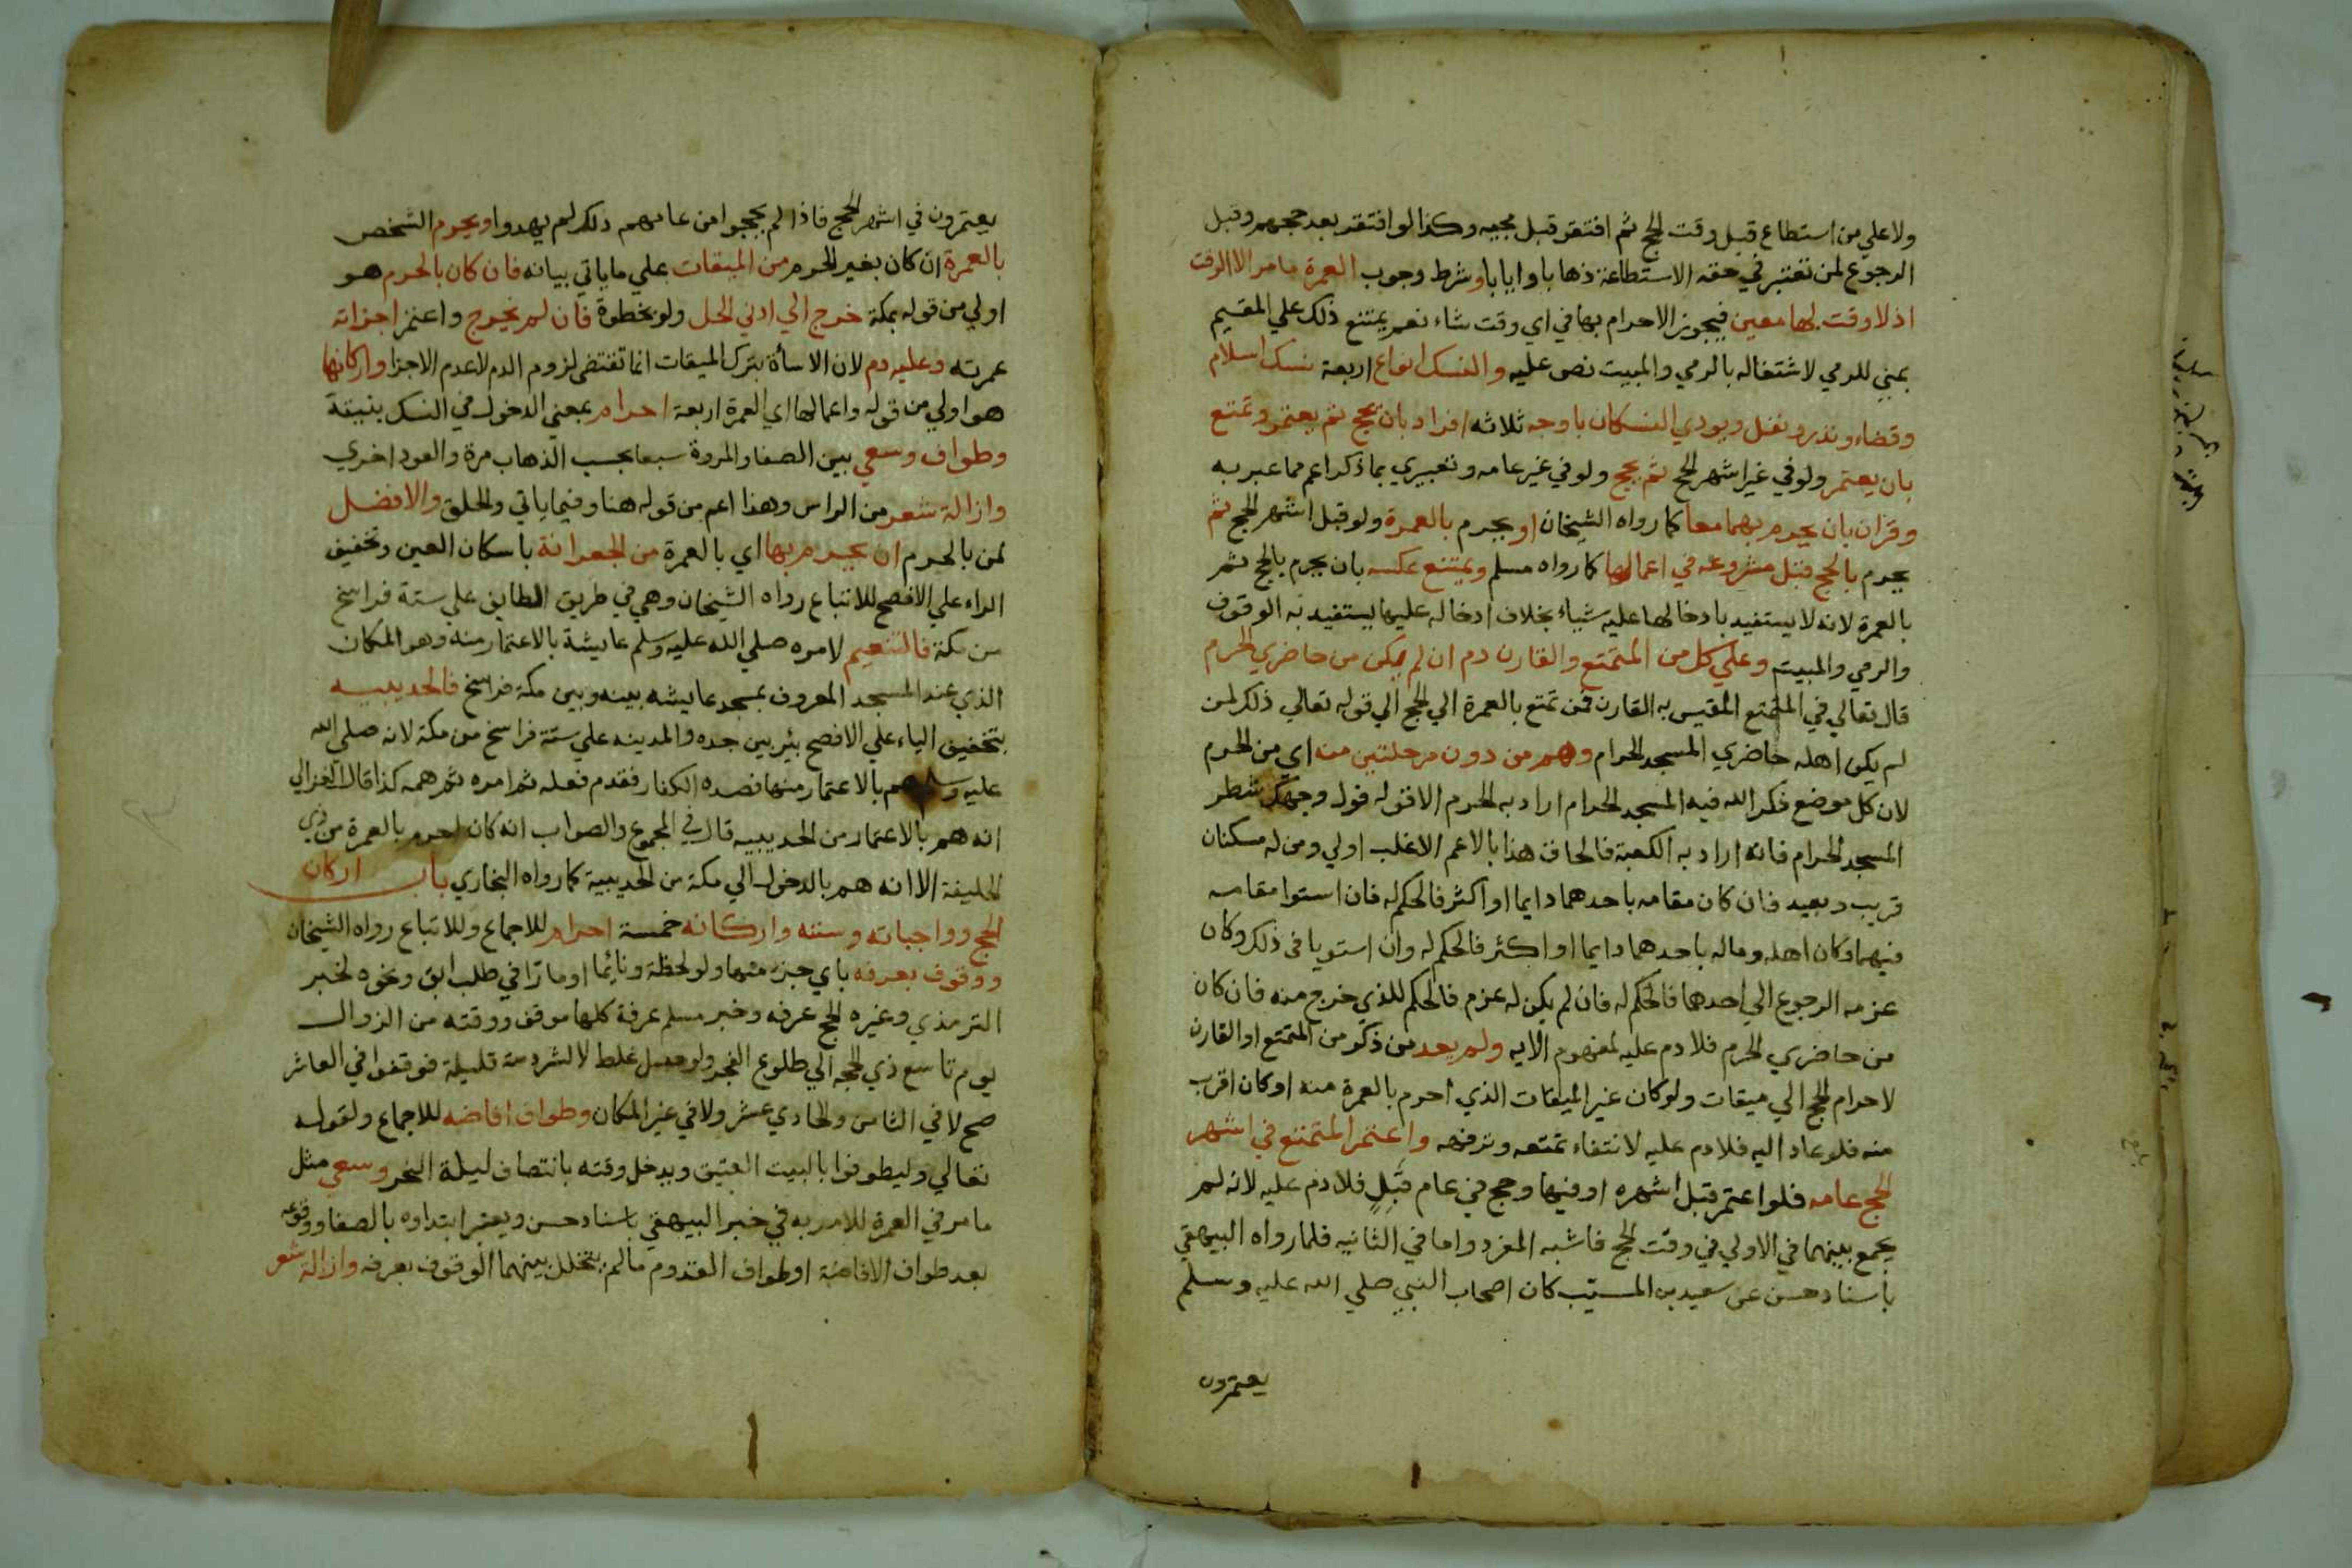 ولا علي من استطاع قبل وقت الحج ثم افتقر قبل مجيه وكذا لو افتقر بعد حجهم وقبل
الرجوع لمن تعتبر في حقه الاستطاعة ذهابا وايابا وشرط وجوب العمرة ما مر الا الوقت
اذ لا وقت لها معين فيجوز الاحرام بها في اي وقت شاء نعم يمتنع ذلك علي المقيم
بمني للرمي لاشتغاله بالرمي والمبيت نص عليه والنسك انواع اربعة نسك اسلام
وقضاء ونذر ونفل ويودي النسكان باوجه ثلاثه افراد بان يحج ثم يعتمر وتمتع
بان يعتمر ولو في غير اشهر الحج ثم يحج ولو في غير عامه وتعبيري بما ذكر اعم مما عبر به
وقران بان يحرم بهما معا كما رواه الشيخان او يحرم بالعمرة ولو قبل اشهر الحج ثم
يحرم بالحج قبل مشروعه في اعمالها كما رواه مسلم ويمتنع عكسه بان يحرم بالحج ثم
بالعمرة لانه لا يستفيد بادخالها عليه شياء بخلاف ادخاله عليها يستفيد به الوقوف
والرمي والمبيت وعلي كل من المتمتع والقارن دم ان لم يكن من حاضري الحرم
قال تعالي في المتمتع المقيس به القارن فمن تمتع بالعمرة الي الحج الي قوله تعالي ذلك لمن
لم يكن اهله حاضري المسجد الحرام وهم من دون مرحلتين منه اي من الحرم
لان كل موضع ذكر الله فيه المسجد الحرام اراد به الحرم الا قوله فول وجهك شطر
المسجد الحرام فانه اراد به الكعبة فالحاق هذا بالاعم الاغلب اولي ومن له مسكنان
قريب وبعيد فان كان مقامه باحدهما دايما او اكثر فالحكم له فان استوا مقامه
فيهما وكان اهله وماله باحدهما دايما او اكثر فالحكم له وان استويا في ذلك وكان
عزمه الرجوع الي احدهما فالحكم له فان لم يكن له عزم فالحكم للذي خرج منه فان كان
من حاضري الحرم فلا دم عليه لمفهوم الايه ولم يعد من ذكر من المتمتع او القارن
لاحرام الحج الي ميقات ولو كان غير الميقات الذي احرم بالعمرة منه او كان اقرب
منه فلو عاد اليه فلا دم عليه لانتفاء تمتعه وترفهه واعتمر المتمتع في اشهر
الحج عامه فلو اعتمر قبل اشهره او فيها وحج في عام قبل فلا دم عليه لانه لم
يجمع بينهما في الاولي في وقت الحج فاشبه المفرد واما في الثانيه فلما رواه البيهقي
باسناد حسن عن سعيد بن المسيب كان اصحاب النبي صلي الله عليه وسلم
يعتمرون
يعتمرون في اشهر الحج فاذا لم يحجوا من عامهم ذلك لم يهدوا ويحرم الشخص
بالعمرة ان كان بغير الحرم من الميقات علي ما ياتي بيانه فان كان بالحرم هو
اولي من قوله بمكة خرج الي ادني الحل ولو بخطوة فان لم يخرج واعتمر اجزاته
عمرته وعليه دم لان الاسأة بترك الميقات انما تقتضي لزوم الدم لا عدم الاجزا واركانها
هو اولي من قوله واعمالها اي العمرة اربعة احرام بمعني الدخول في النسك بنيته
وطواف وسعي بين الصفا والمروة سبعا بحسب الذهاب مرة والعود اخري
وازالة شعر من الراس وهذا اعم من قوله هنا وفيما ياتي والحلق والافضل
لمن بالحرم ان يحرم بها اي بالعمرة من الجعرانة باسكان العين وتخفيف
الراء علي الافصح للاتباع رواه الشيخان وهي في طريق الطايف علي ستة فراسخ
من مكة فالتنعيم لامره صلي الله عليه وسلم عايشة بالاعتمار منه وهو المكان
الذي عند المسجد المعروف بمسجد عايشه بينه وبين مكة فراسخ فالحديبيه
بتخفيف الياء علي الافصح بئر بين جده والمدينه علي ستة فراسخ من مكة لانه صلي الله
عليه وسلم هم بالاعتمار منها فصده الكفار فقدم فعله ثم امره ثم همه كذا قال الغزالي
انه هم بالاعتمار من الحديبيه قال في المجموع والصواب انه كان احرم بالعمرة من ذي
الحليفة الا انه هم بالدخول الي مكة من الحديبية كما رواه البخاري باب اركان
الحج وواجباته وسننه واركانه خمسة احرام للاجماع وللاتباع رواه الشيخان
ووقوف بعرفه باي جزء منها ولو لحظة ونايما او مارا في طلب ابق ونحوه لخبر
الترمذي وغيره الحج عرفه وخبر مسلم عرفة كلها موقف ووقته من الزوال
يوم تاسع ذي الحجه الي طلوع الفجر ولو حصل غلط لا لشردمة قليلة فوقفوا في العاشر
صح لا في الثامن والحادي عشر ولا في غير المكان وطواف افاضه للاجماع ولقوله
تعالي وليطوفوا بالبيت العتيق ويدخل وقته بانتصاف ليلة النحر وسعي مثل
ما مر في العمرة للامر به في خبر البيهقي باسناد حسن ويعتبر ابتداوه بالصفا ووقوعه
بعد طواف الافاضة او طواف القدوم ما لم يتخلل بينهما الوقوف بعرفه وازالة شعر